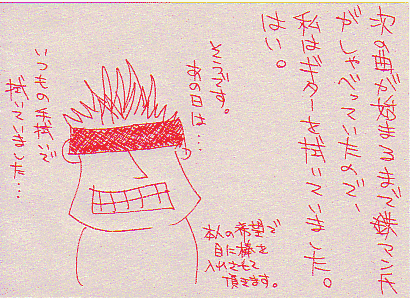 次の曲が始まるまで鉄マン
がしゃべっていたんで、
私はギターを弾いていました。
はい。
そうです。
あの日は…
いつもの手癖で
弾いていました…
本人の希望で
目に棒を
入れさせて
頂きます。